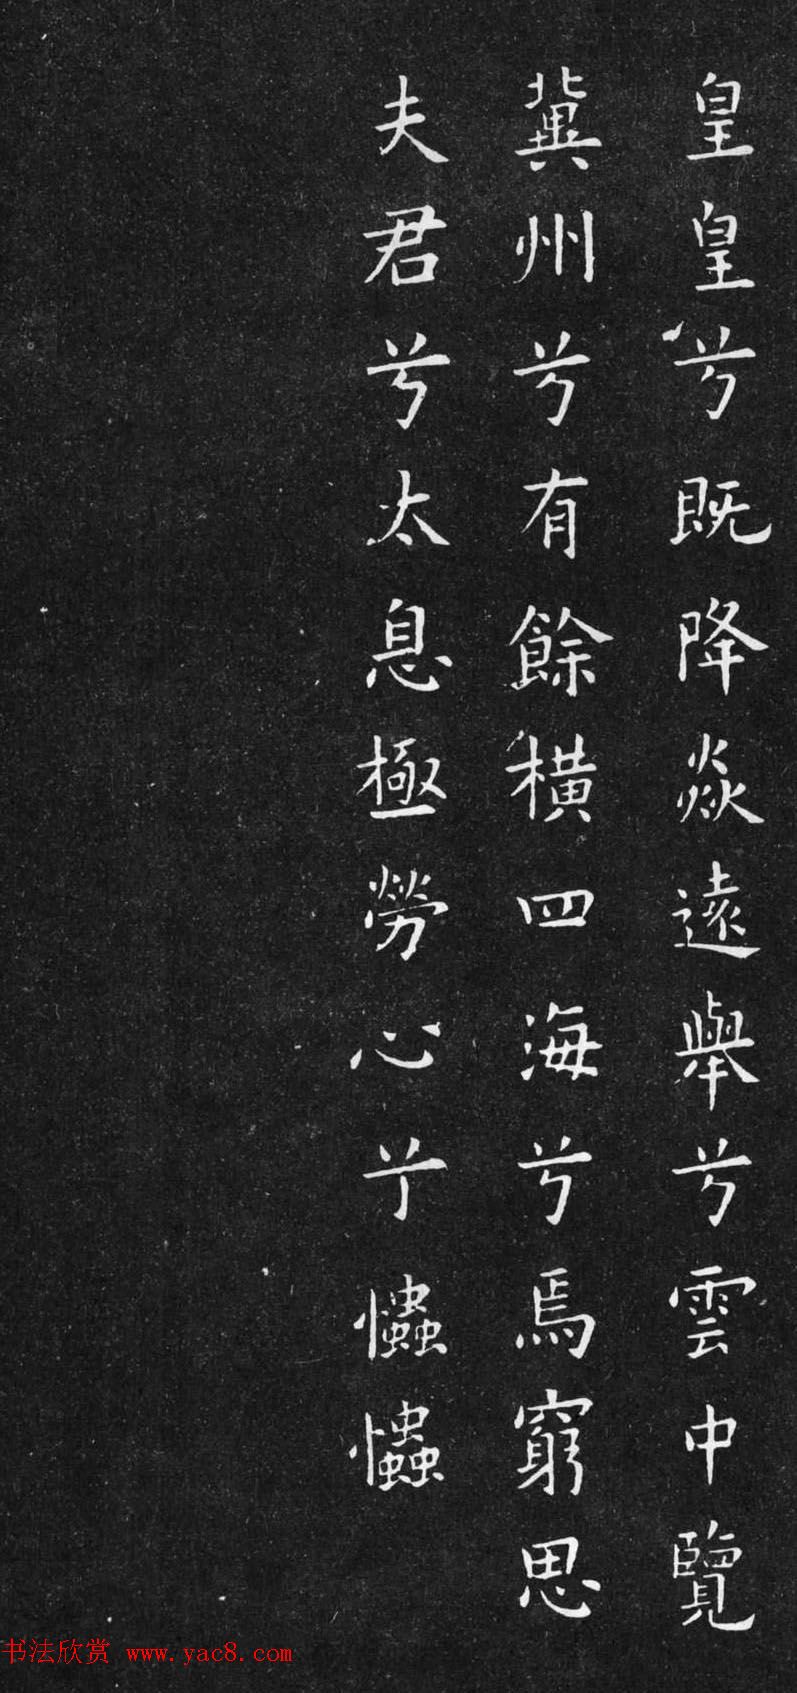 皇皇兮既降焱遠舉兮雲中覽
冀州兮有餘橫四海兮焉窮思
夫君兮太息極勞心兮𢥞𢥞
书法欣赏 www.yac8.com